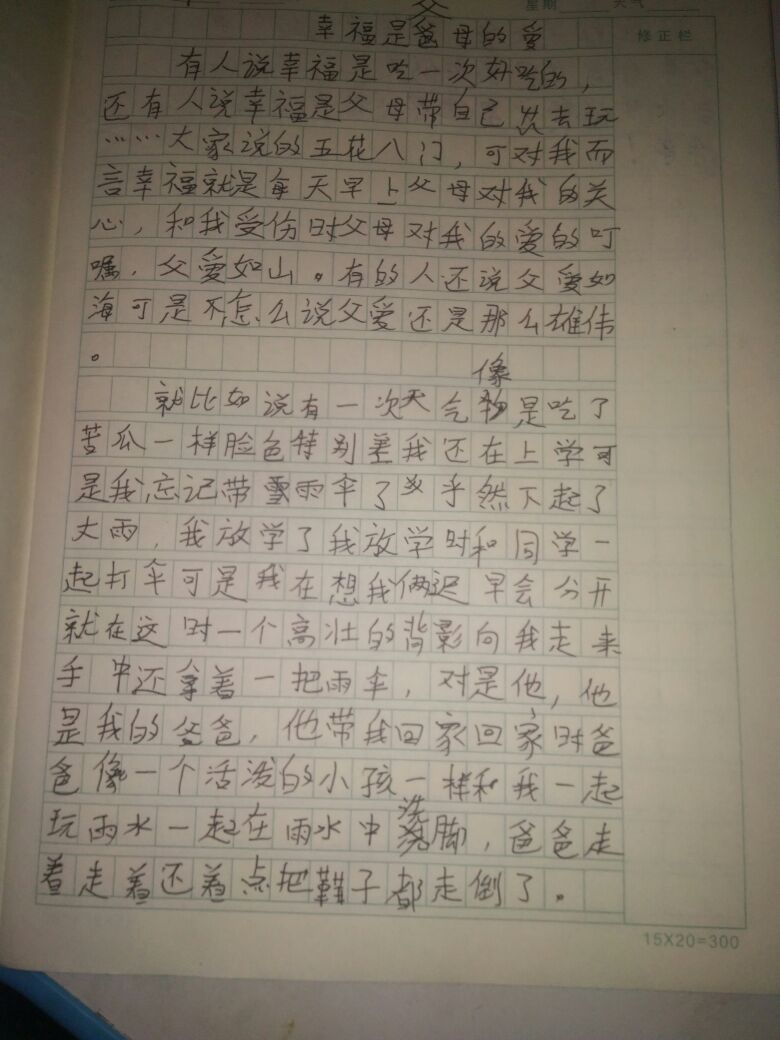 父
星期 天气
幸福是爸母的爱
修正栏
有人说幸福是吃一次好吃的，
还有人说幸福是父母带自己出去玩
……大家说的五花八门，可对我而
言幸福就是每天早上父母对我的关
心，和我受伤时父母对我的爱的叮
嘱，父爱如山。有的人还说父爱如
海可是不怎么说父爱还是那么雄伟
。
像
就比如说有一次天气是吃了
苦瓜一样脸色特别差我还在上学可
是我忘记带雨伞了乎然下起了
大雨，我放学了我放学时和同学一
起打伞可是我在想我俩迟早会分开
就在这时一个高壮的背影向我走来
手中还拿着一把雨伞，对是他，他
是我的爸爸，他带我回家回家时爸
爸像一个活泼的小孩一样和我一起
洗
玩雨水一起在雨水中脚，爸爸走
着走着还着点把鞋子都走倒了。
15X20=300